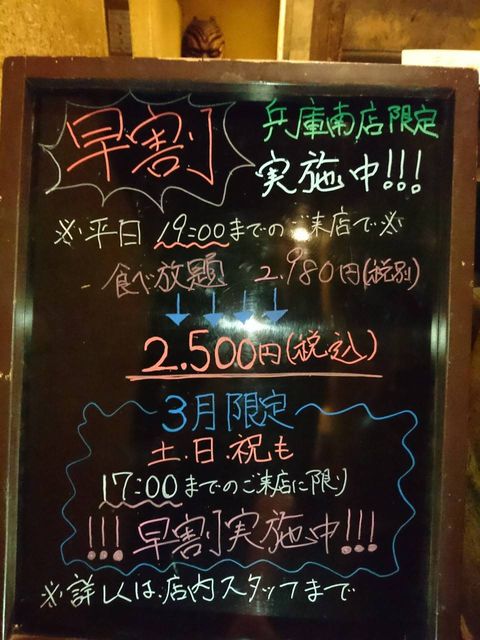 早割
兵庫南店限定
実施中!!!
※平日 19:00までのご来店で※
食べ放題 2.980円(税別)
↓↓↓↓
2.500円(税込)
3月限定
土.日.祝も
17:00までのご来店に限り
!!! 早割実施中!!!
※詳しくは.店内スタッフまで